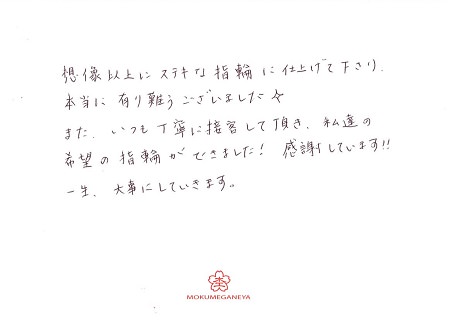 想像以上にステキな指輪に仕上げて下さり、
本当に有り難うございました☆
また、いつも丁寧に接客して頂き、私達の
希望の指輪ができました! 感謝しています!!
一生、大事にしていきます。
MOKUMEGANEYA